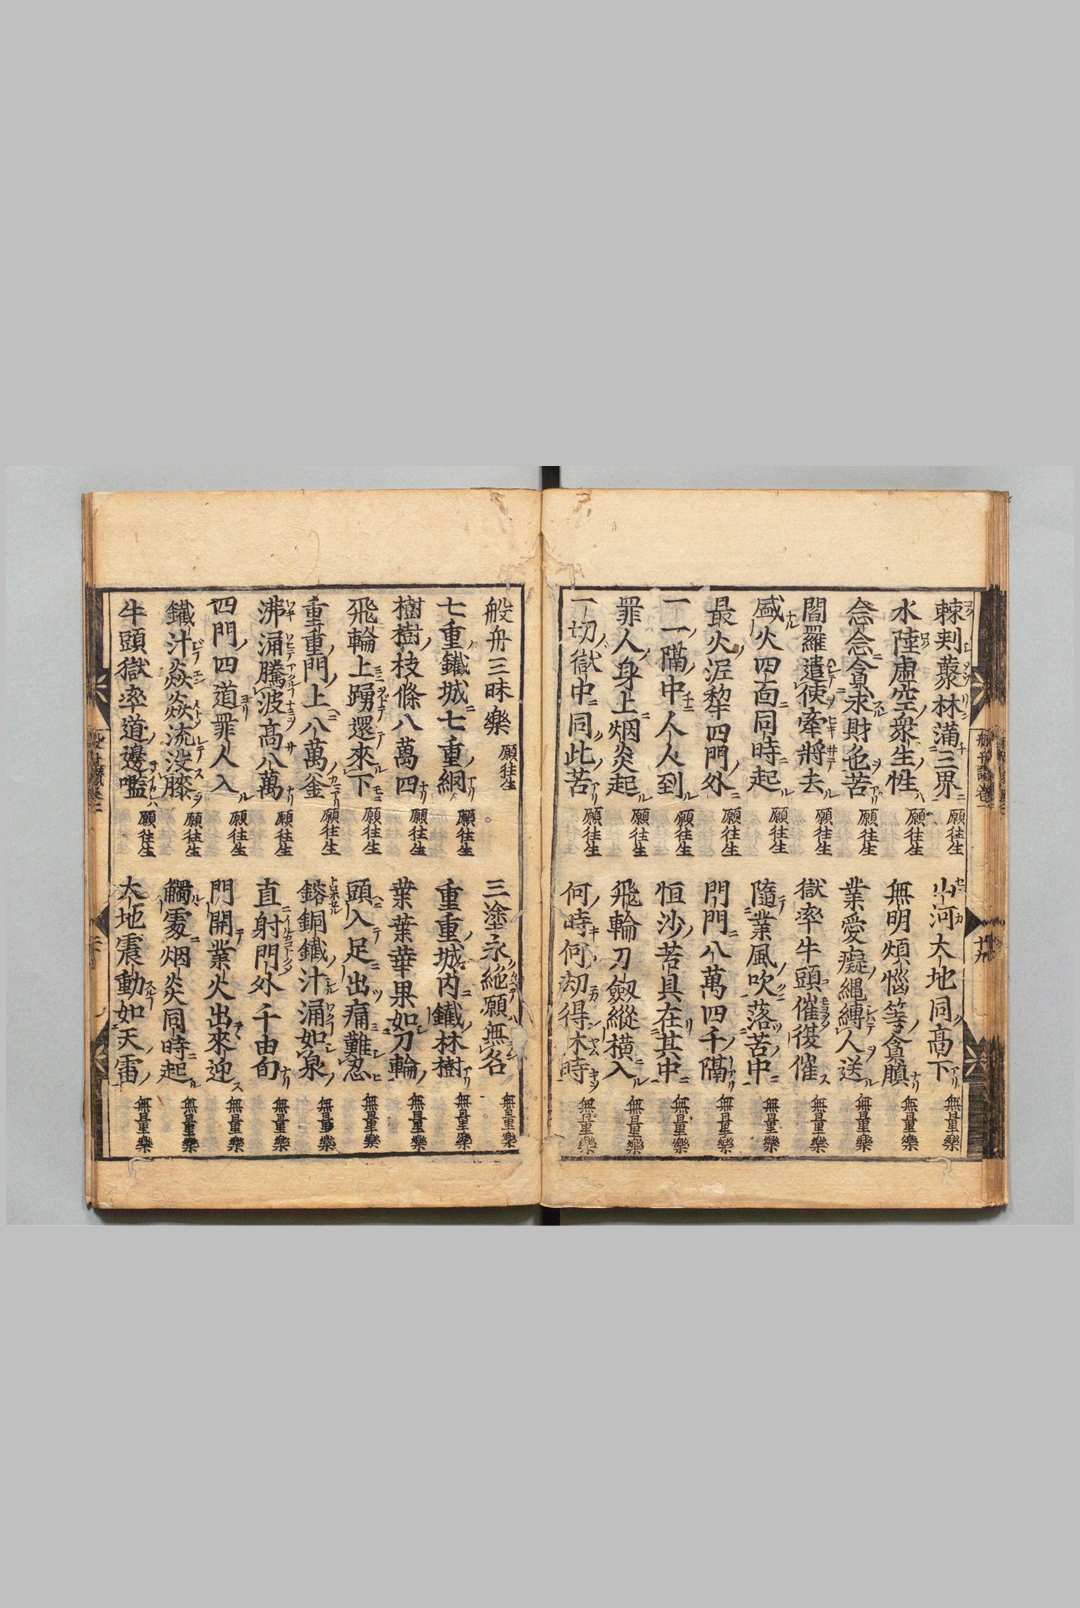 棘刺叢林滿三界 願往生 山河大地同高下 無量樂
水陸虛空衆生性 願往生 無明煩惱等貪瞋 無量樂
念念貪求財色苦 願往生 業愛癡繩縛人送 無量樂
閻羅遣使牽將去 願往生 獄率牛頭催復催 無量樂
盛火四面同時起 願往生 隨業風吹落苦中 無量樂
最火泥犂四門外 願往生 門門八萬四千隔 無量樂
一一隔中人人到 願往生 恒沙苦具在其中 無量樂
罪人身上烟炎起 願往生 飛輪刀劔縱横入 無量樂
一切獄中同此苦 願往生 何時何劫得休時 無量樂
般舟三昧樂 願往生 三塗永絕願無名 無量樂
七重鐵城七重網 願往生 重重城内鐵林樹 無量樂
樹樹枝條八萬四 願往生 葉葉華果如刀輪 無量樂
飛輪上踊還來下 願往生 頭入足出痛難忍 無量樂
重重門上八萬釜 願往生 鎔銅鐵汁涌如泉 無量樂
沸涌騰波高八萬 願往生 直射門外千由旬 無量樂
四門四道罪人入 願往生 門開業火出來迎 無量樂
鐵汁焱焱流沒膝 願往生 觸處烟炎同時起 無量樂
牛頭獄率道邊嚂 願往生 大地震動如天雷 無量樂